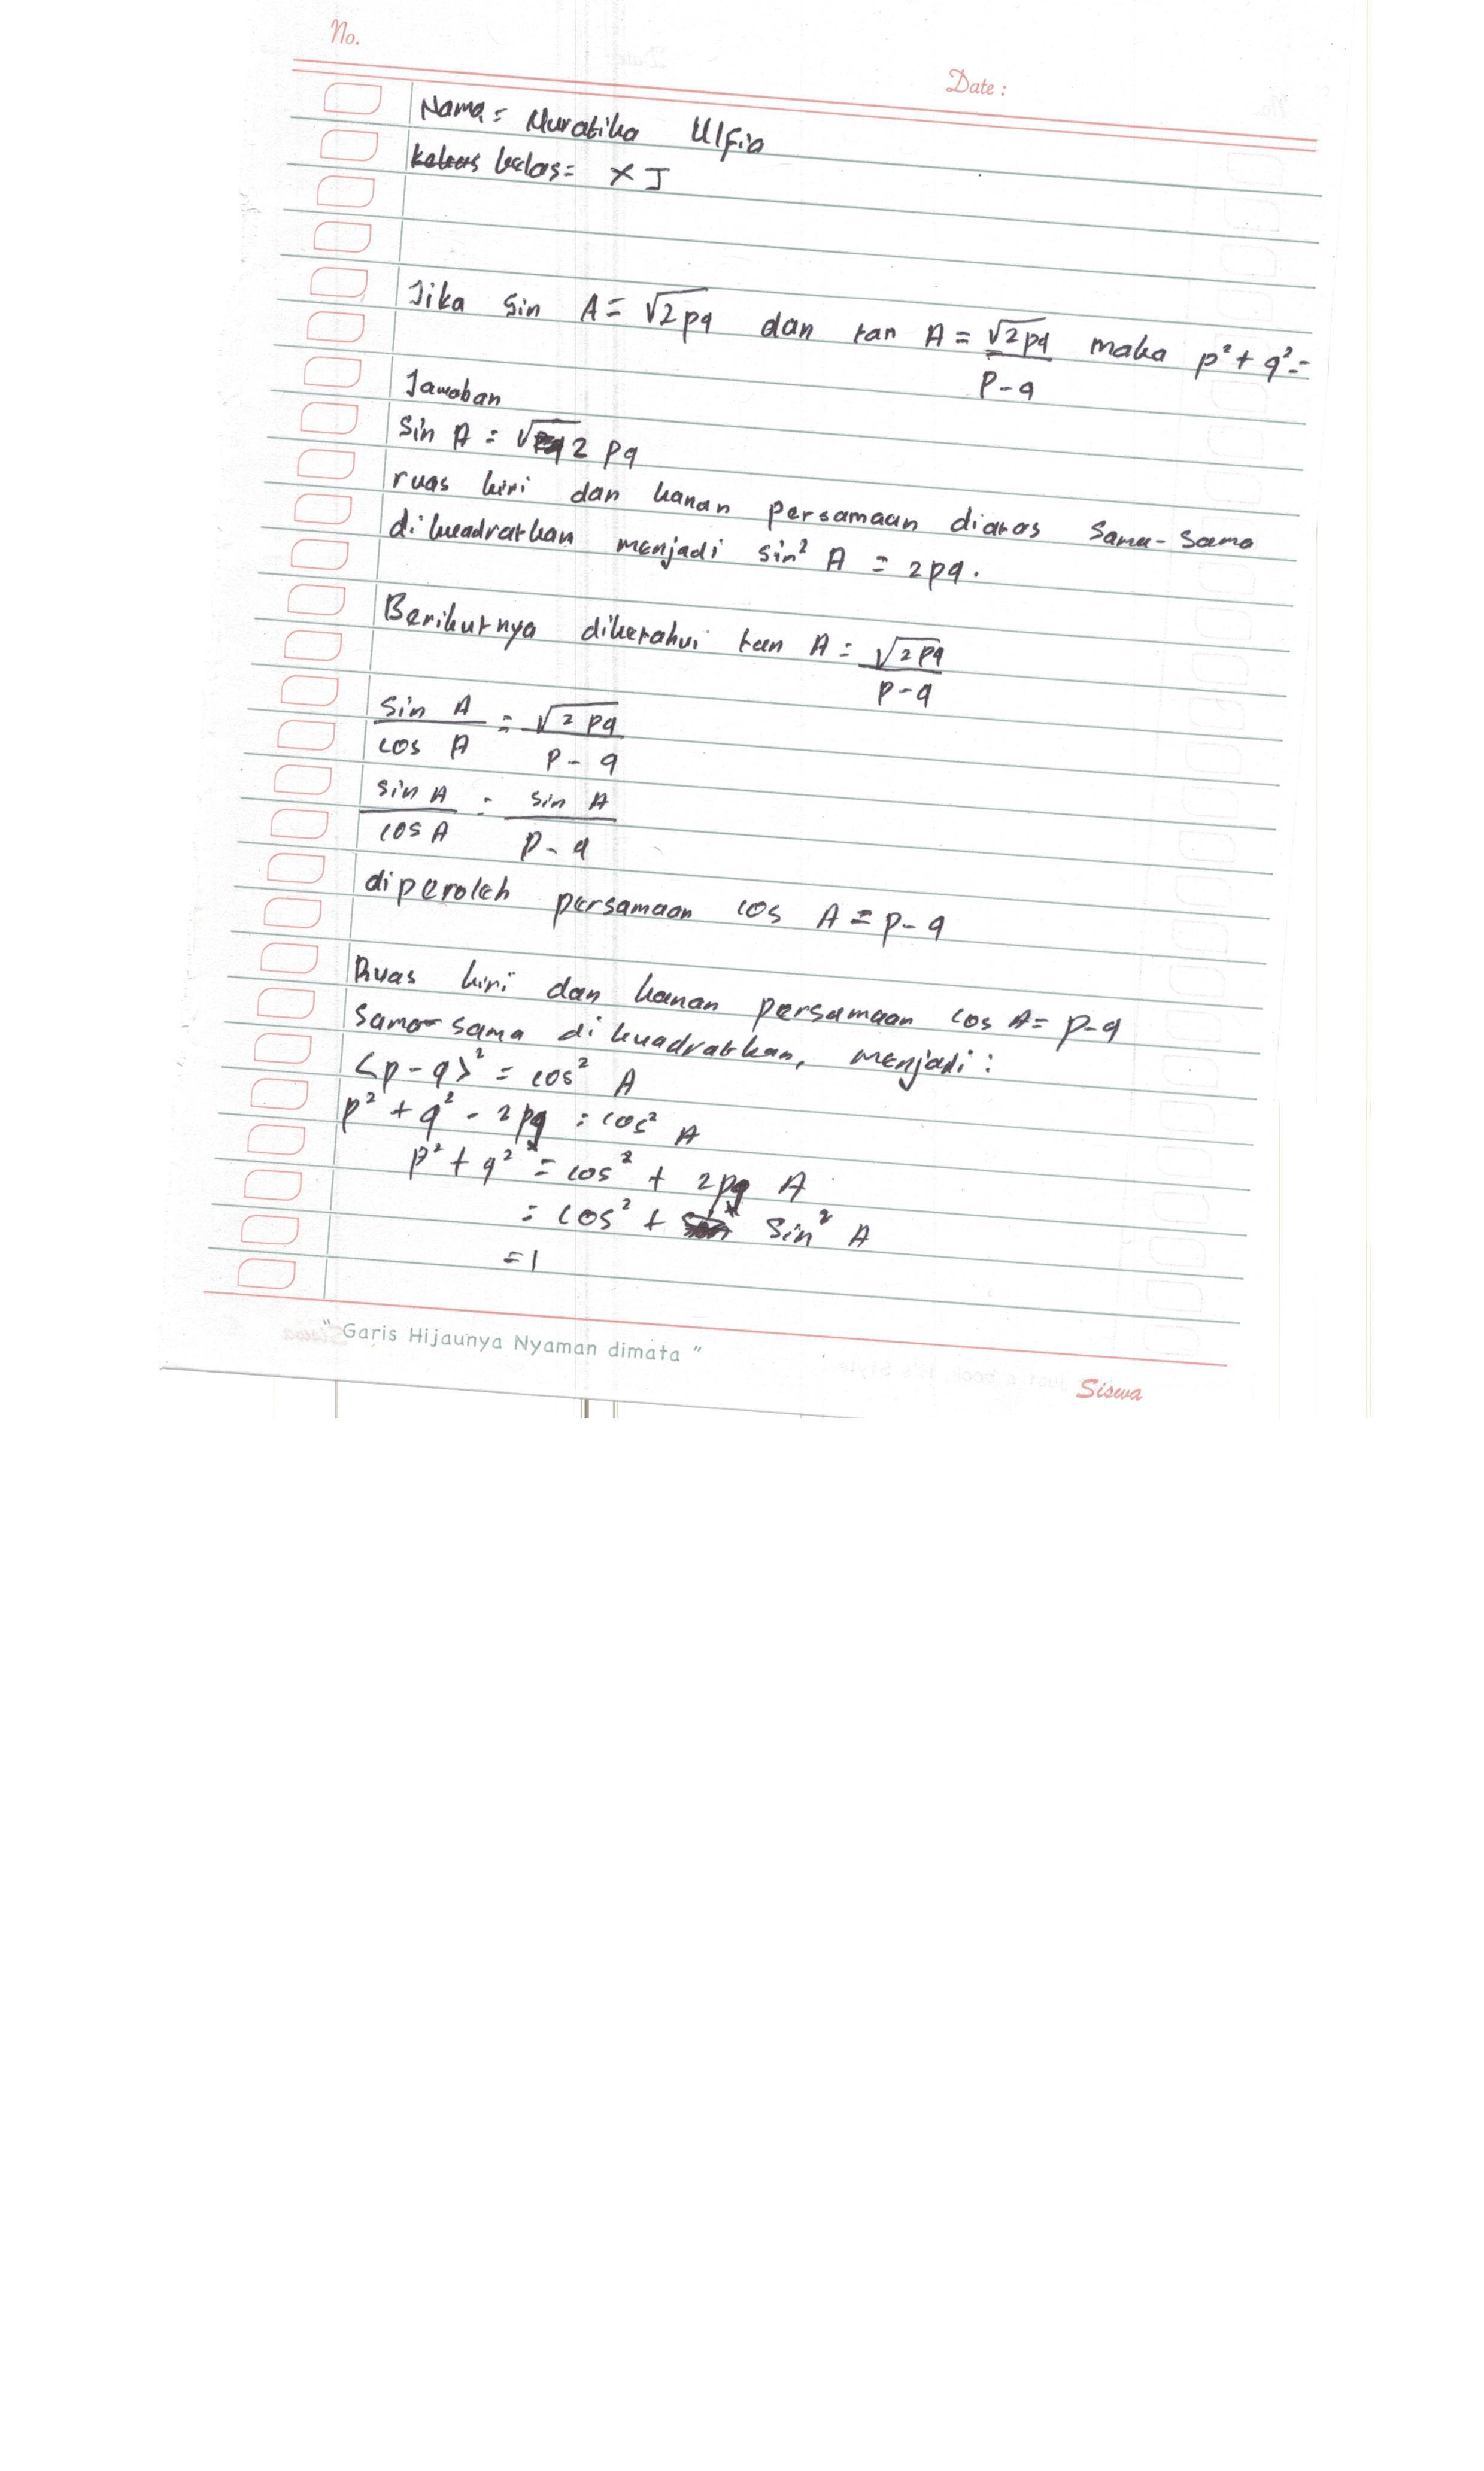 No.
Date :
Nama = Nuratika Ulfia
kelas = X J
Jika sin A = √2pq dan tan A = √2pq / p-q maka p² + q² =
Jawaban
Sin A = √2 pq
ruas kiri dan kanan persamaan diatas sama-sama
dikuadratkan menjadi sin² A = 2pq.
Berikutnya diketahui tan A = √2pq / p-q
sin A / cos A = √2pq / p-q
sin A / cos A = sin A / p-q
diperoleh persamaan cos A = p-q
Ruas kiri dan kanan persamaan cos A = p-q
sama-sama dikuadratkan, menjadi :
<p-q>² = cos² A
p² + q² - 2pq = cos² A
p² + q² = cos² + 2pq A
= cos² + sin² A
= 1
" Garis Hijaunya Nyaman dimata "
Siswa